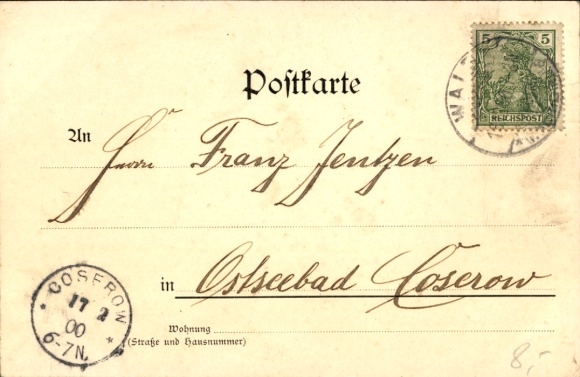 5 5
REICHSPOST
Postkarte
An
Herrn Franz Jentzen
in Ostseebad Coserow
Wohnung
(Straße und Hausnummer)
COSEROW
17 2
00
6-7N.
8,-